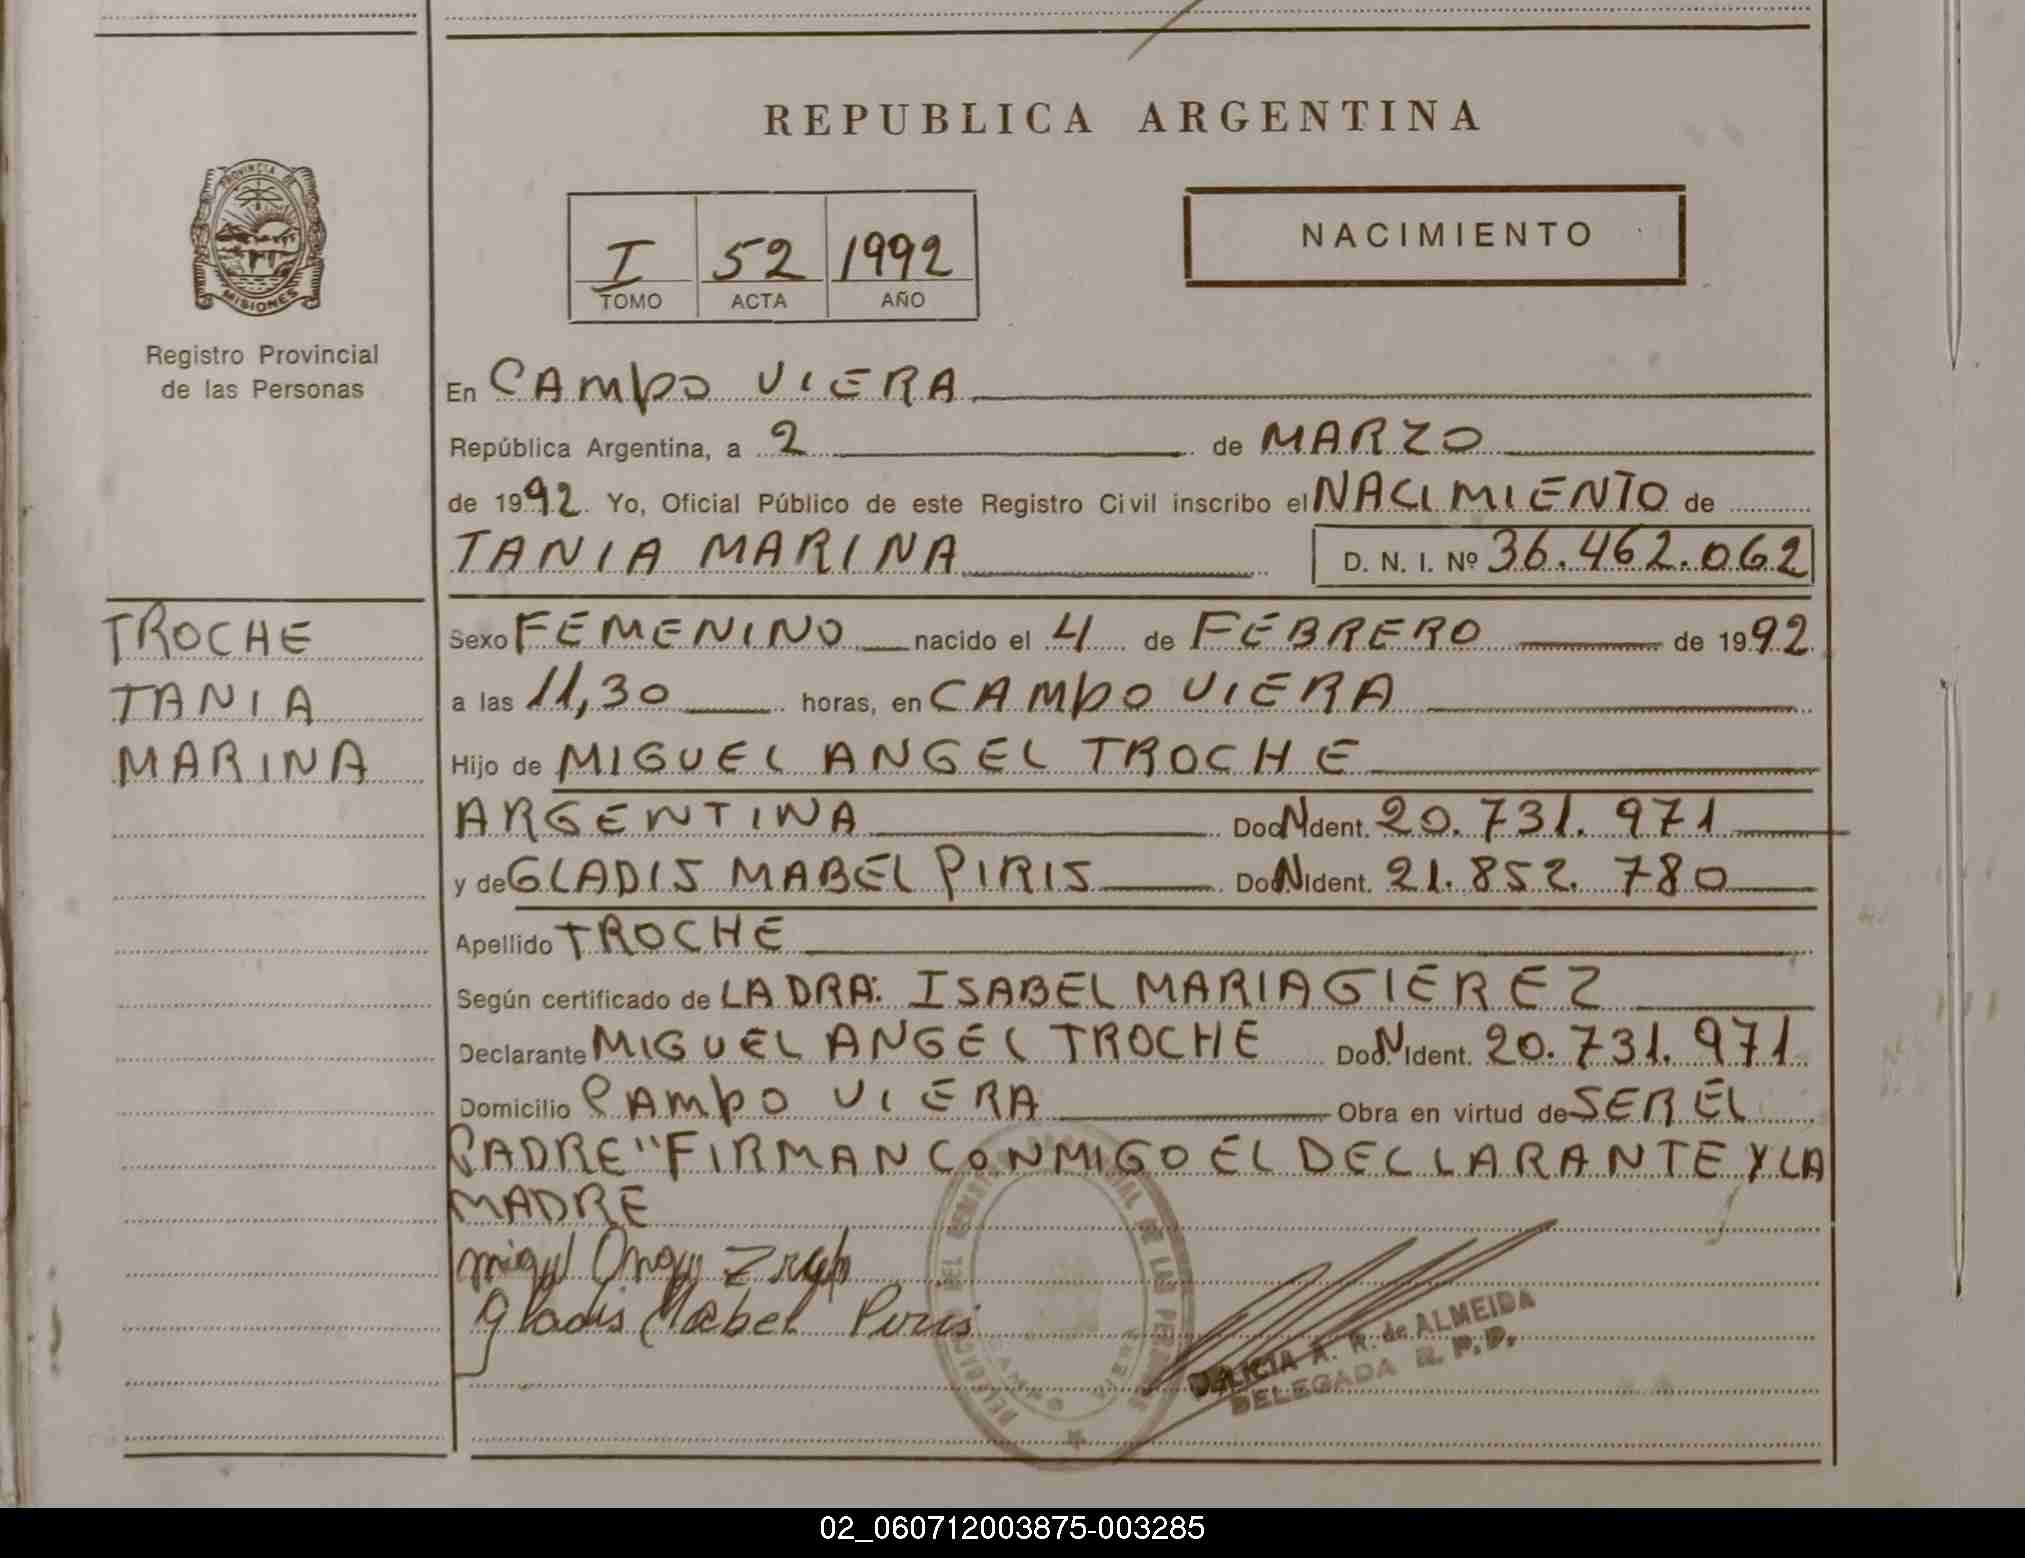 REPUBLICA ARGENTINA
PROVINCIA DE
MISIONES
Registro Provincial
de las Personas
I 52 1992
TOMO ACTA AÑO
NACIMIENTO
En CAMPO VIERA
República Argentina, a 2 de MARZO
de 1992. Yo, Oficial Público de este Registro Civil inscribo el NACIMIENTO de
TANIA MARINA D. N. I. Nº 36.462.062
TROCHE
TANIA
MARINA
Sexo FEMENINO nacido el 4 de FEBRERO de 1992
a las 11,30 horas, en CAMPO VIERA
Hijo de MIGUEL ANGEL TROCHE
ARGENTINA Doc N Ident. 20.731.971
y de GLADIS MABEL PIRIS Doc N Ident. 21.852.780
Apellido TROCHE
Según certificado de LA DRA: ISABEL MARIA GIEREZ
Declarante MIGUEL ANGEL TROCHE Doc N Ident. 20.731.971
Domicilio CAMPO VIERA Obra en virtud de SER EL
PADRE" FIRMAN CONMIGO EL DECLARANTE Y LA
MADRE
Gladis Mabel Piris
DELICIA A. R. de ALMEIDA
DELEGADA R. P. P.
02_060712003875-003285